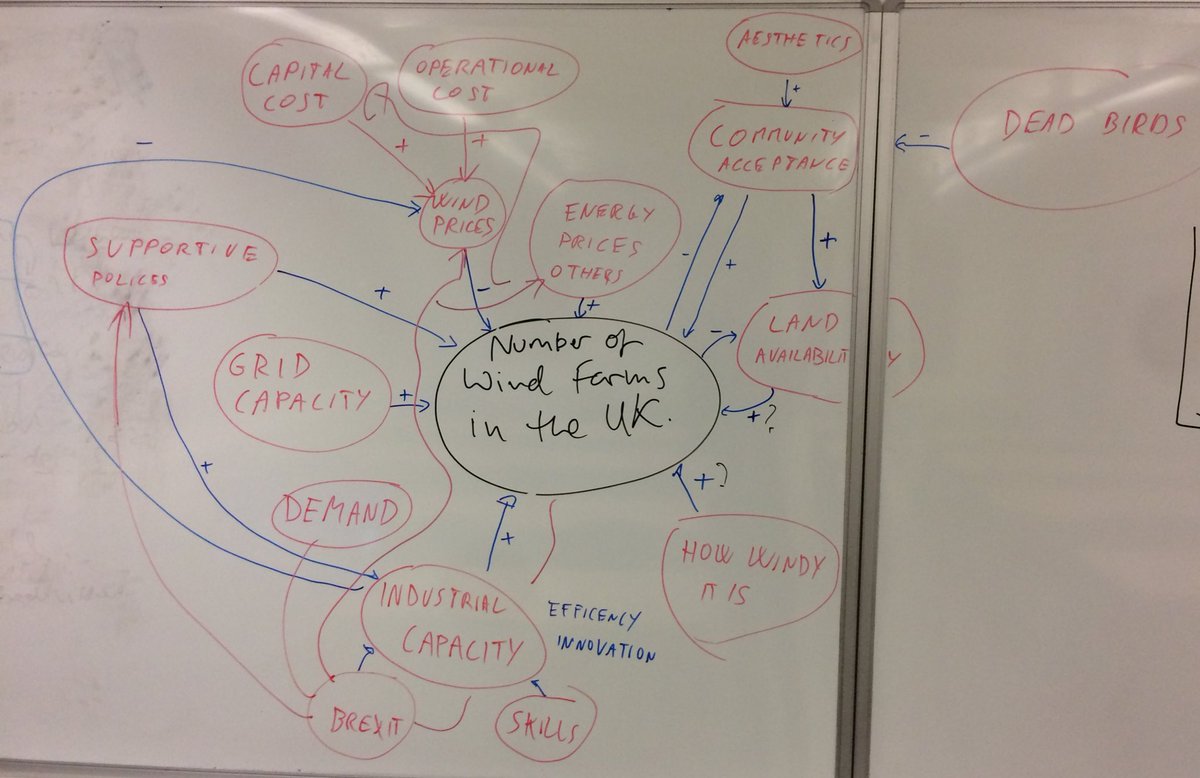 AESTHETICS
CAPITAL
COST
OPERATIONAL
COST
+
DEAD BIRDS
COMMUNITY
ACCEPTANCE
-
+
+
-
WIND
PRICES
ENERGY
PRICES
OTHERS
SUPPORTIVE
POLICES
-
+
+
+
-
+
LAND
AVAILABILITY
-
+?
Number of
Wind Farms
in the UK.
GRID
CAPACITY
+
+
+?
DEMAND
+
HOW WINDY
IT IS
INDUSTRIAL
CAPACITY
EFFICENCY
INNOVATION
BREXIT
SKILLS